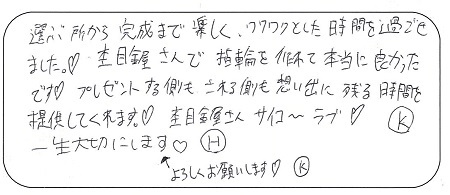 選ぶ所から完成まで楽しく、ワクワクとした時間を過ごせ
ました。♡ 杢目金屋さんで指輪を作れて本当に良かった
です♡ プレゼントする側もされる側も想い出に残る時間を
提供してくれます♡ 杢目金屋さんサイコ〜ラブ♡ Ⓚ
一生大切にします♡ Ⓗ
↑よろしくお願いします♡ Ⓚ